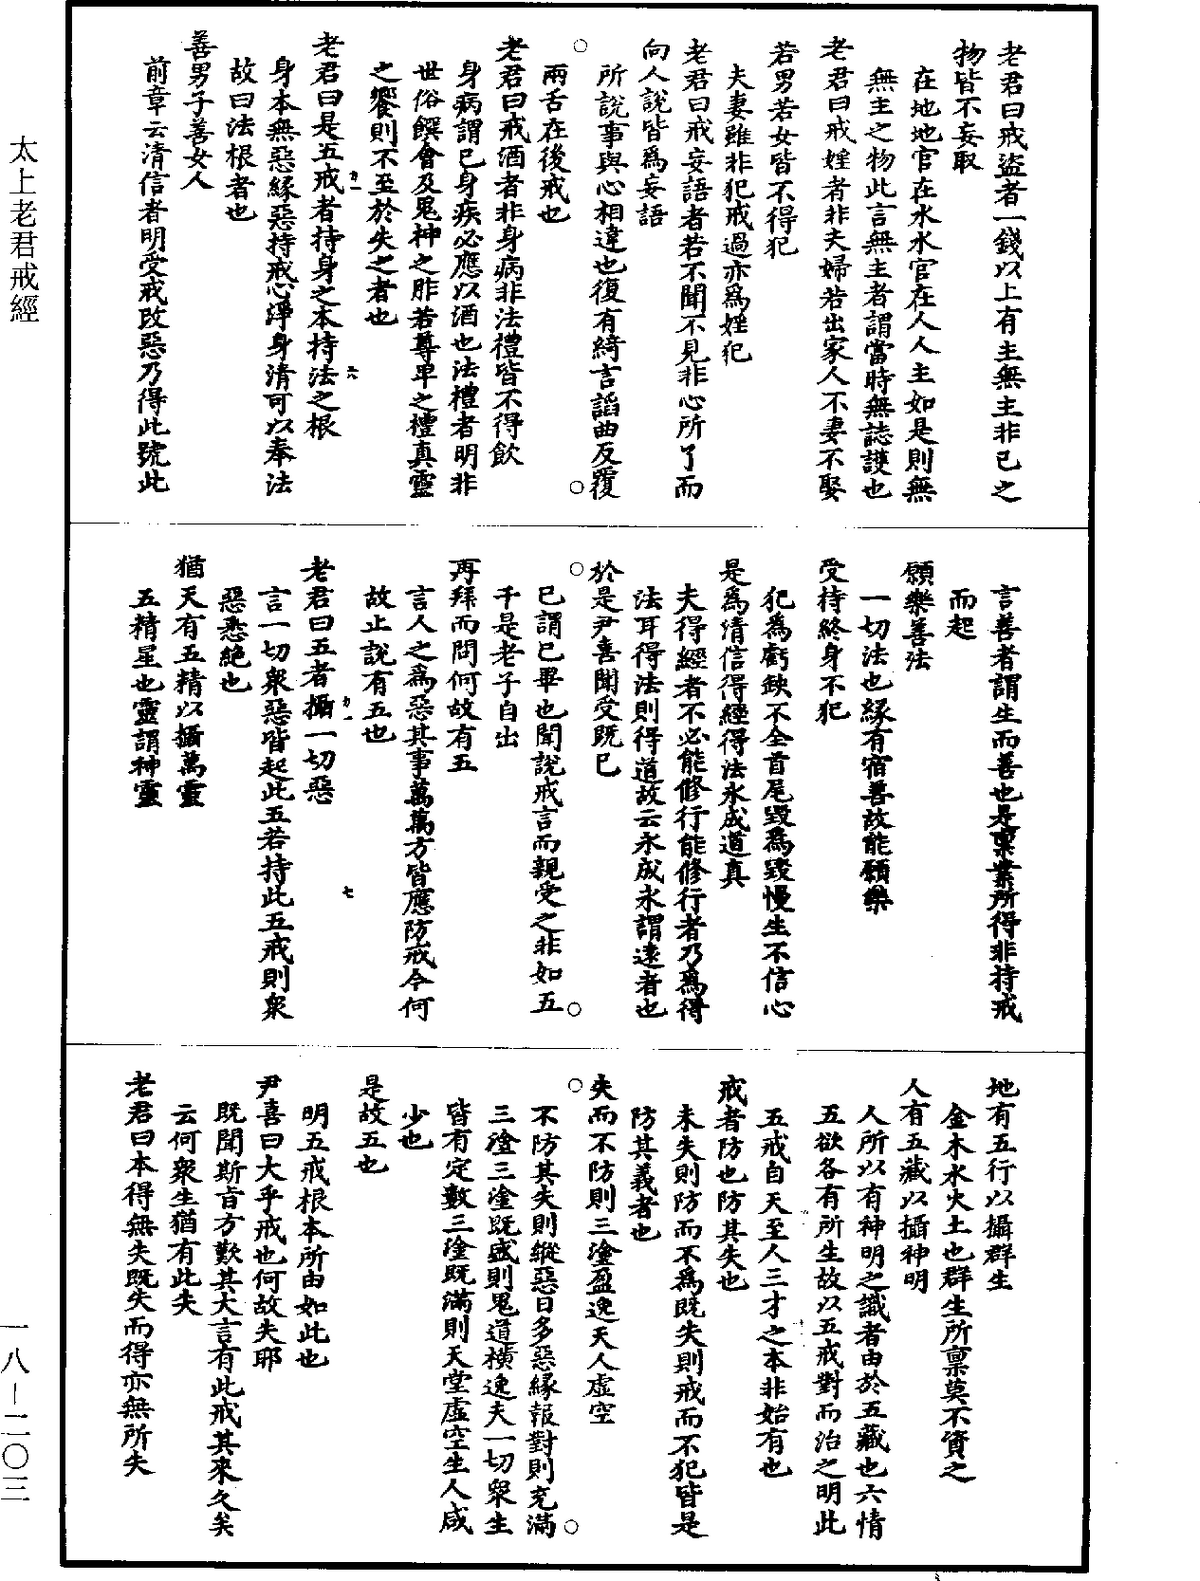 老君曰戒盜者一錢以上有主無主非己之
物皆不妄取
在地地官在水水官在人人主如是則無
無主之物此言無主者謂當時無誌護也
老君曰戒婬者非夫婦若出家人不妻不娶
若男若女皆不得犯
夫妻雖非犯戒過亦為婬犯
老君曰戒妄語者若不聞不見非心所了而
向人說皆為妄語
所說事與心相違也復有綺言謟曲反覆
兩舌在後戒也
老君曰戒酒者非身病非法禮皆不得飲
身病謂己身疾必應以酒也法禮者明非
世俗饌會及鬼神之胙若尊卑之禮真靈
之饗則不至於失之者也
老君曰是五戒者持身之本持法之根
身本無惡緣惡持戒心淨身清可以奉法
故曰法根者也
善男子善女人
前章云清信者明受戒改惡乃得此號此
言善者謂生而善也是稟業所得非持戒
而起
願樂善法
一切法也緣有宿善故能願樂
受持終身不犯
犯為虧缺不全首尾毀為毀慢生不信心
是為清信得經得法永成道真
夫得經者不必能修行能修行者乃為得
法耳得法則得道故云永成永謂遠者也
於是尹喜聞受既已
已謂已畢也聞說戒言而親受之非如五
千是老子自出
再拜而問何故有五
言人之為惡其事萬萬方皆應防戒今何
故止說有五也
老君曰五者攝一切惡
言一切眾惡皆起此五若持此五戒則眾
惡悉絕也
猶天有五精以攝萬靈
五精星也靈謂神靈
地有五行以攝群生
金木水火土也群生所稟莫不資之
人有五藏以攝神明
人所以有神明之識者由於五藏也六情
五欲各有所生故以五戒對而治之明此
五戒自天至人三才之本非始有也
戒者防也防其失也
未失則防而不為既失則戒而不犯皆是
防其義者也
失而不防則三塗盈逸天人虛空
不防其失則縱惡日多惡緣報對則充滿
三塗三塗既盛則鬼道橫逸夫一切眾生
皆有定數三塗既滿則天堂虛空生人咸
少也
是故五也
明五戒根本所由如此也
尹喜曰大乎戒也何故失耶
既聞斯旨方歎其大言有此戒其來久矣
云何眾生猶有此失
老君曰本得無失既失而得亦無所失
太上老君戒經
一八—二〇三